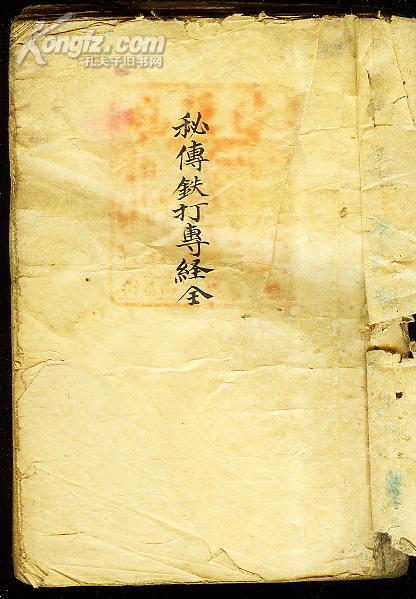 Kongfz.com
孔夫子旧书网
秘傳鉄打專経全